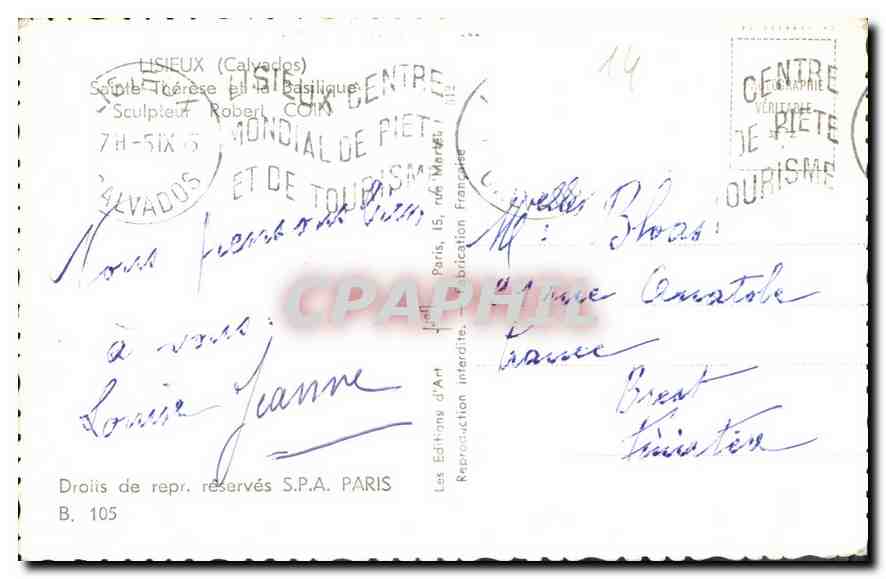 LISIEUX (Calvados)
Sainte Thérèse et la Basilique
Sculpteur Robert COIN
LISIEUX CENTRE
MONDIAL DE PIETE
ET DE TOURISME
7H-5 IX
CALVADOS
Nous pensons bien
à vous.
Louise Jeanne
Droits de repr. réservés S.P.A. PARIS
B. 105
Les Editions d'Art Paris, 15, rue Martel
Reproduction interdite. Fabrication Française
14
PHOTOGRAPHIE
VÉRITABLE
CENTRE
DE PIETE
TOURISME
Melles Bloas
rue Anatole
France
Brest
Finistère
CPAPHIL